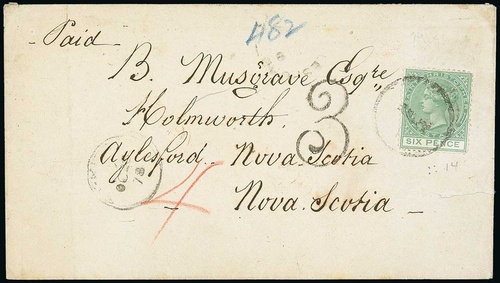 Paid
482
B. Musgrave Esqre
Holmworth,
Aylesford. Nova. Scotia
Nova. Scotia
3
4
SIX PENCE
78
14